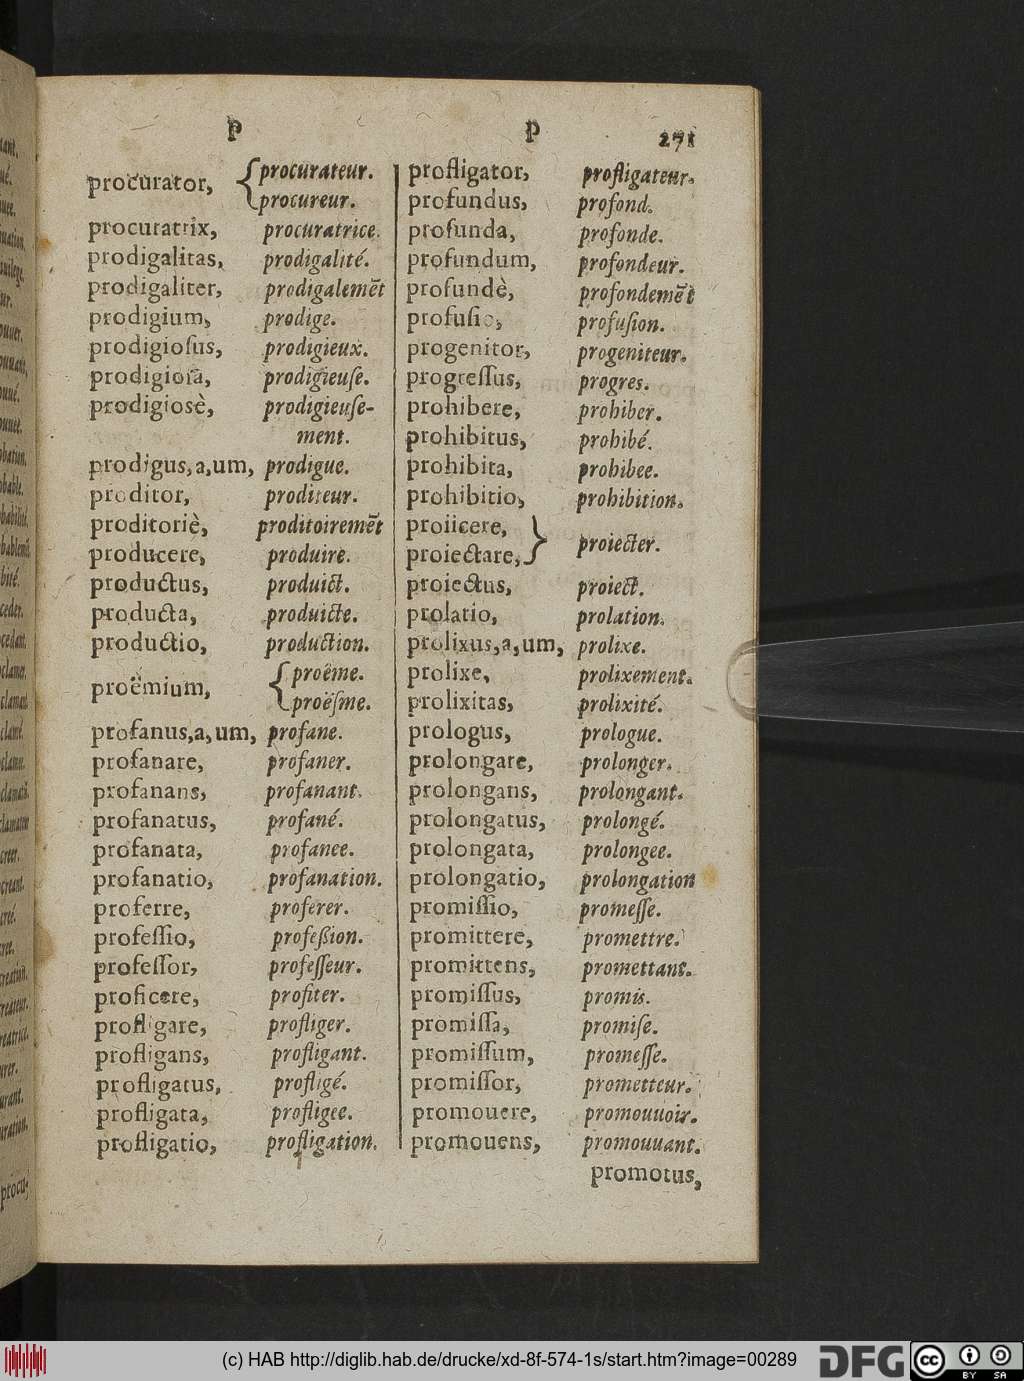 P P 271
procurator, procurateur.
procureur.
procuratrix, procuratrice.
prodigalitas, prodigalité.
prodigaliter, prodigalemēt
prodigium, prodige.
prodigiosus, prodigieux.
prodigiosa, prodigieuse.
prodigiosè, prodigieuse-
ment.
prodigus,a,um, prodigue.
proditor, proditeur.
proditoriè, proditoiremēt
producere, produire.
productus, produict.
producta, produicte.
productio, production.
proëmium, proême.
proësme.
profanus,a,um, profane.
profanare, profaner.
profanans, profanant.
profanatus, profané.
profanata, profanee.
profanatio, profanation.
proferre, proferer.
professio, profeßion.
professor, professeur.
proficere, profiter.
profligare, profliger.
profligans, profligant.
profligatus, profligé.
profligata, profligee.
profligatio, profligation.
profligator, profligateur.
profundus, profond.
profunda, profonde.
profundum, profondeur.
profundè, profondemēt
profusio, profusion.
progenitor, progeniteur.
progressus, progres.
prohibere, prohiber.
prohibitus, prohibé.
prohibita, prohibee.
prohibitio, prohibition.
proiicere,
proiectare, proiecter.
proiectus, proiect.
prolatio, prolation.
prolixus,a,um, prolixe.
prolixe, prolixement.
prolixitas, prolixité.
prologus, prologue.
prolongare, prolonger.
prolongans, prolongant.
prolongatus, prolongé.
prolongata, prolongee.
prolongatio, prolongation
promissio, promesse.
promittere, promettre.
promittens, promettant.
promissus, promis.
promissa, promise.
promissum, promesse.
promissor, prometteur.
promouere, promouuoir.
promouens, promouuant.
promotus,
(c) HAB http://diglib.hab.de/drucke/xd-8f-574-1s/start.htm?image=00289
DFG cc BY SA